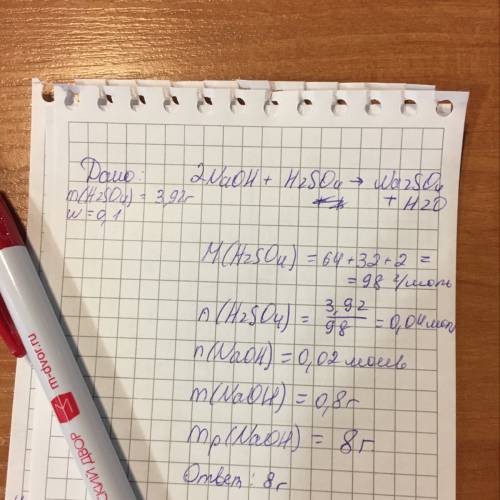 Дано:
m(H2SO4) = 3,92г
w = 0,1
2NaOH + H2SO4 → Na2SO4
+ H2O
M(H2SO4) = 64+32+2 =
= 98 г/моль
n(H2SO4) = 3,92/98 = 0,04 моль
n(NaOH) = 0,02 моль
m(NaOH) = 0,8г
mр(NaOH) = 8г
Ответ: 8г
m-dvor.ru
СКИЙ ДВОР